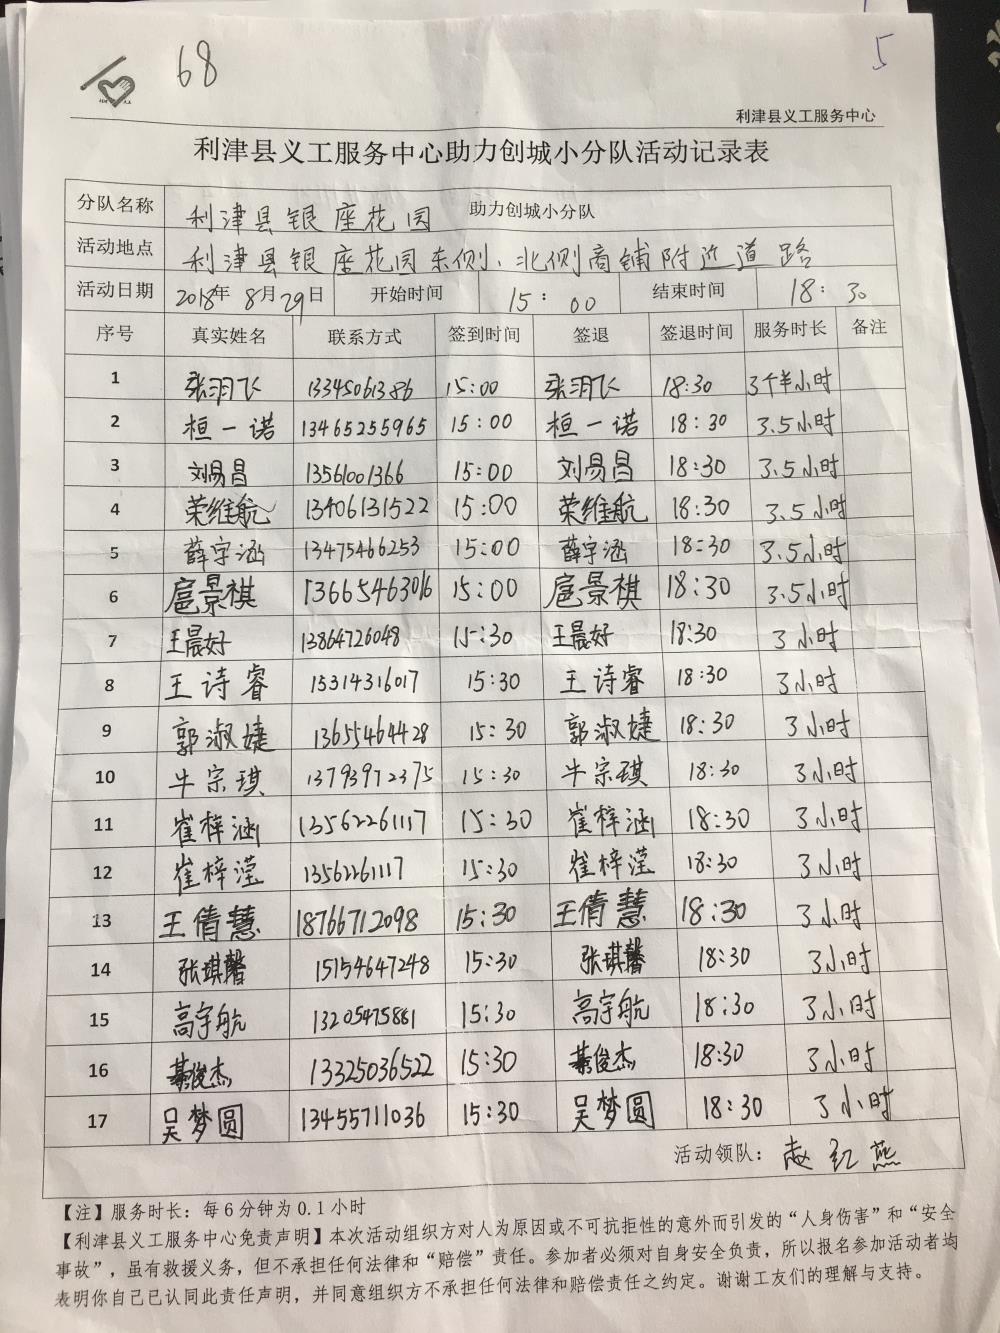 68
5
利津县义工服务中心
利津县义工服务中心助力创城小分队活动记录表
分队名称 利津县银座花园 助力创城小分队
活动地点 利津县银座花园东侧、北侧商铺附近道路
活动日期 2018年8月29日 开始时间 15:00 结束时间 18:30
序号 真实姓名 联系方式 签到时间 签退 签退时间 服务时长 备注
1 张羽飞 13345061386 15:00 张羽飞 18:30 3个半小时
2 桓一诺 13465255965 15:00 桓一诺 18:30 3.5小时
3 刘易昌 13561001366 15:00 刘易昌 18:30 3.5小时
4 荣维航 13406131522 15:00 荣维航 18:30 3.5小时
5 薛宇涵 13475466253 15:00 薛宇涵 18:30 3.5小时
6 扈景祺 13665463016 15:00 扈景祺 18:30 3.5小时
7 王晨好 13864726048 15:30 王晨好 18:30 3小时
8 王诗睿 15314316017 15:30 王诗睿 18:30 3小时
9 郭淑婕 13655464428 15:30 郭淑婕 18:30 3小时
10 牛宗琪 13793972375 15:30 牛宗琪 18:30 3小时
11 崔梓涵 13562261117 15:30 崔梓涵 18:30 3小时
12 崔梓滢 13562261117 15:30 崔梓滢 18:30 3小时
13 王倩慧 18766712098 15:30 王倩慧 18:30 3小时
14 张琪馨 15154647248 15:30 张琪馨 18:30 3小时
15 高宇航 13205475861 15:30 高宇航 18:30 3小时
16 綦俊杰 13325036522 15:30 綦俊杰 18:30 3小时
17 吴梦圆 13455711036 15:30 吴梦圆 18:30 3小时
活动领队：赵红燕
【注】服务时长：每6分钟为0.1小时
【利津县义工服务中心免责声明】本次活动组织方对人为原因或不可抗拒性的意外而引发的“人身伤害”和“安全
事故”，虽有救援义务，但不承担任何法律和“赔偿”责任。参加者必须对自身安全负责，所以报名参加活动者均
表明你自己已认同此责任声明，并同意组织方不承担任何法律和赔偿责任之约定。谢谢工友们的理解与支持。